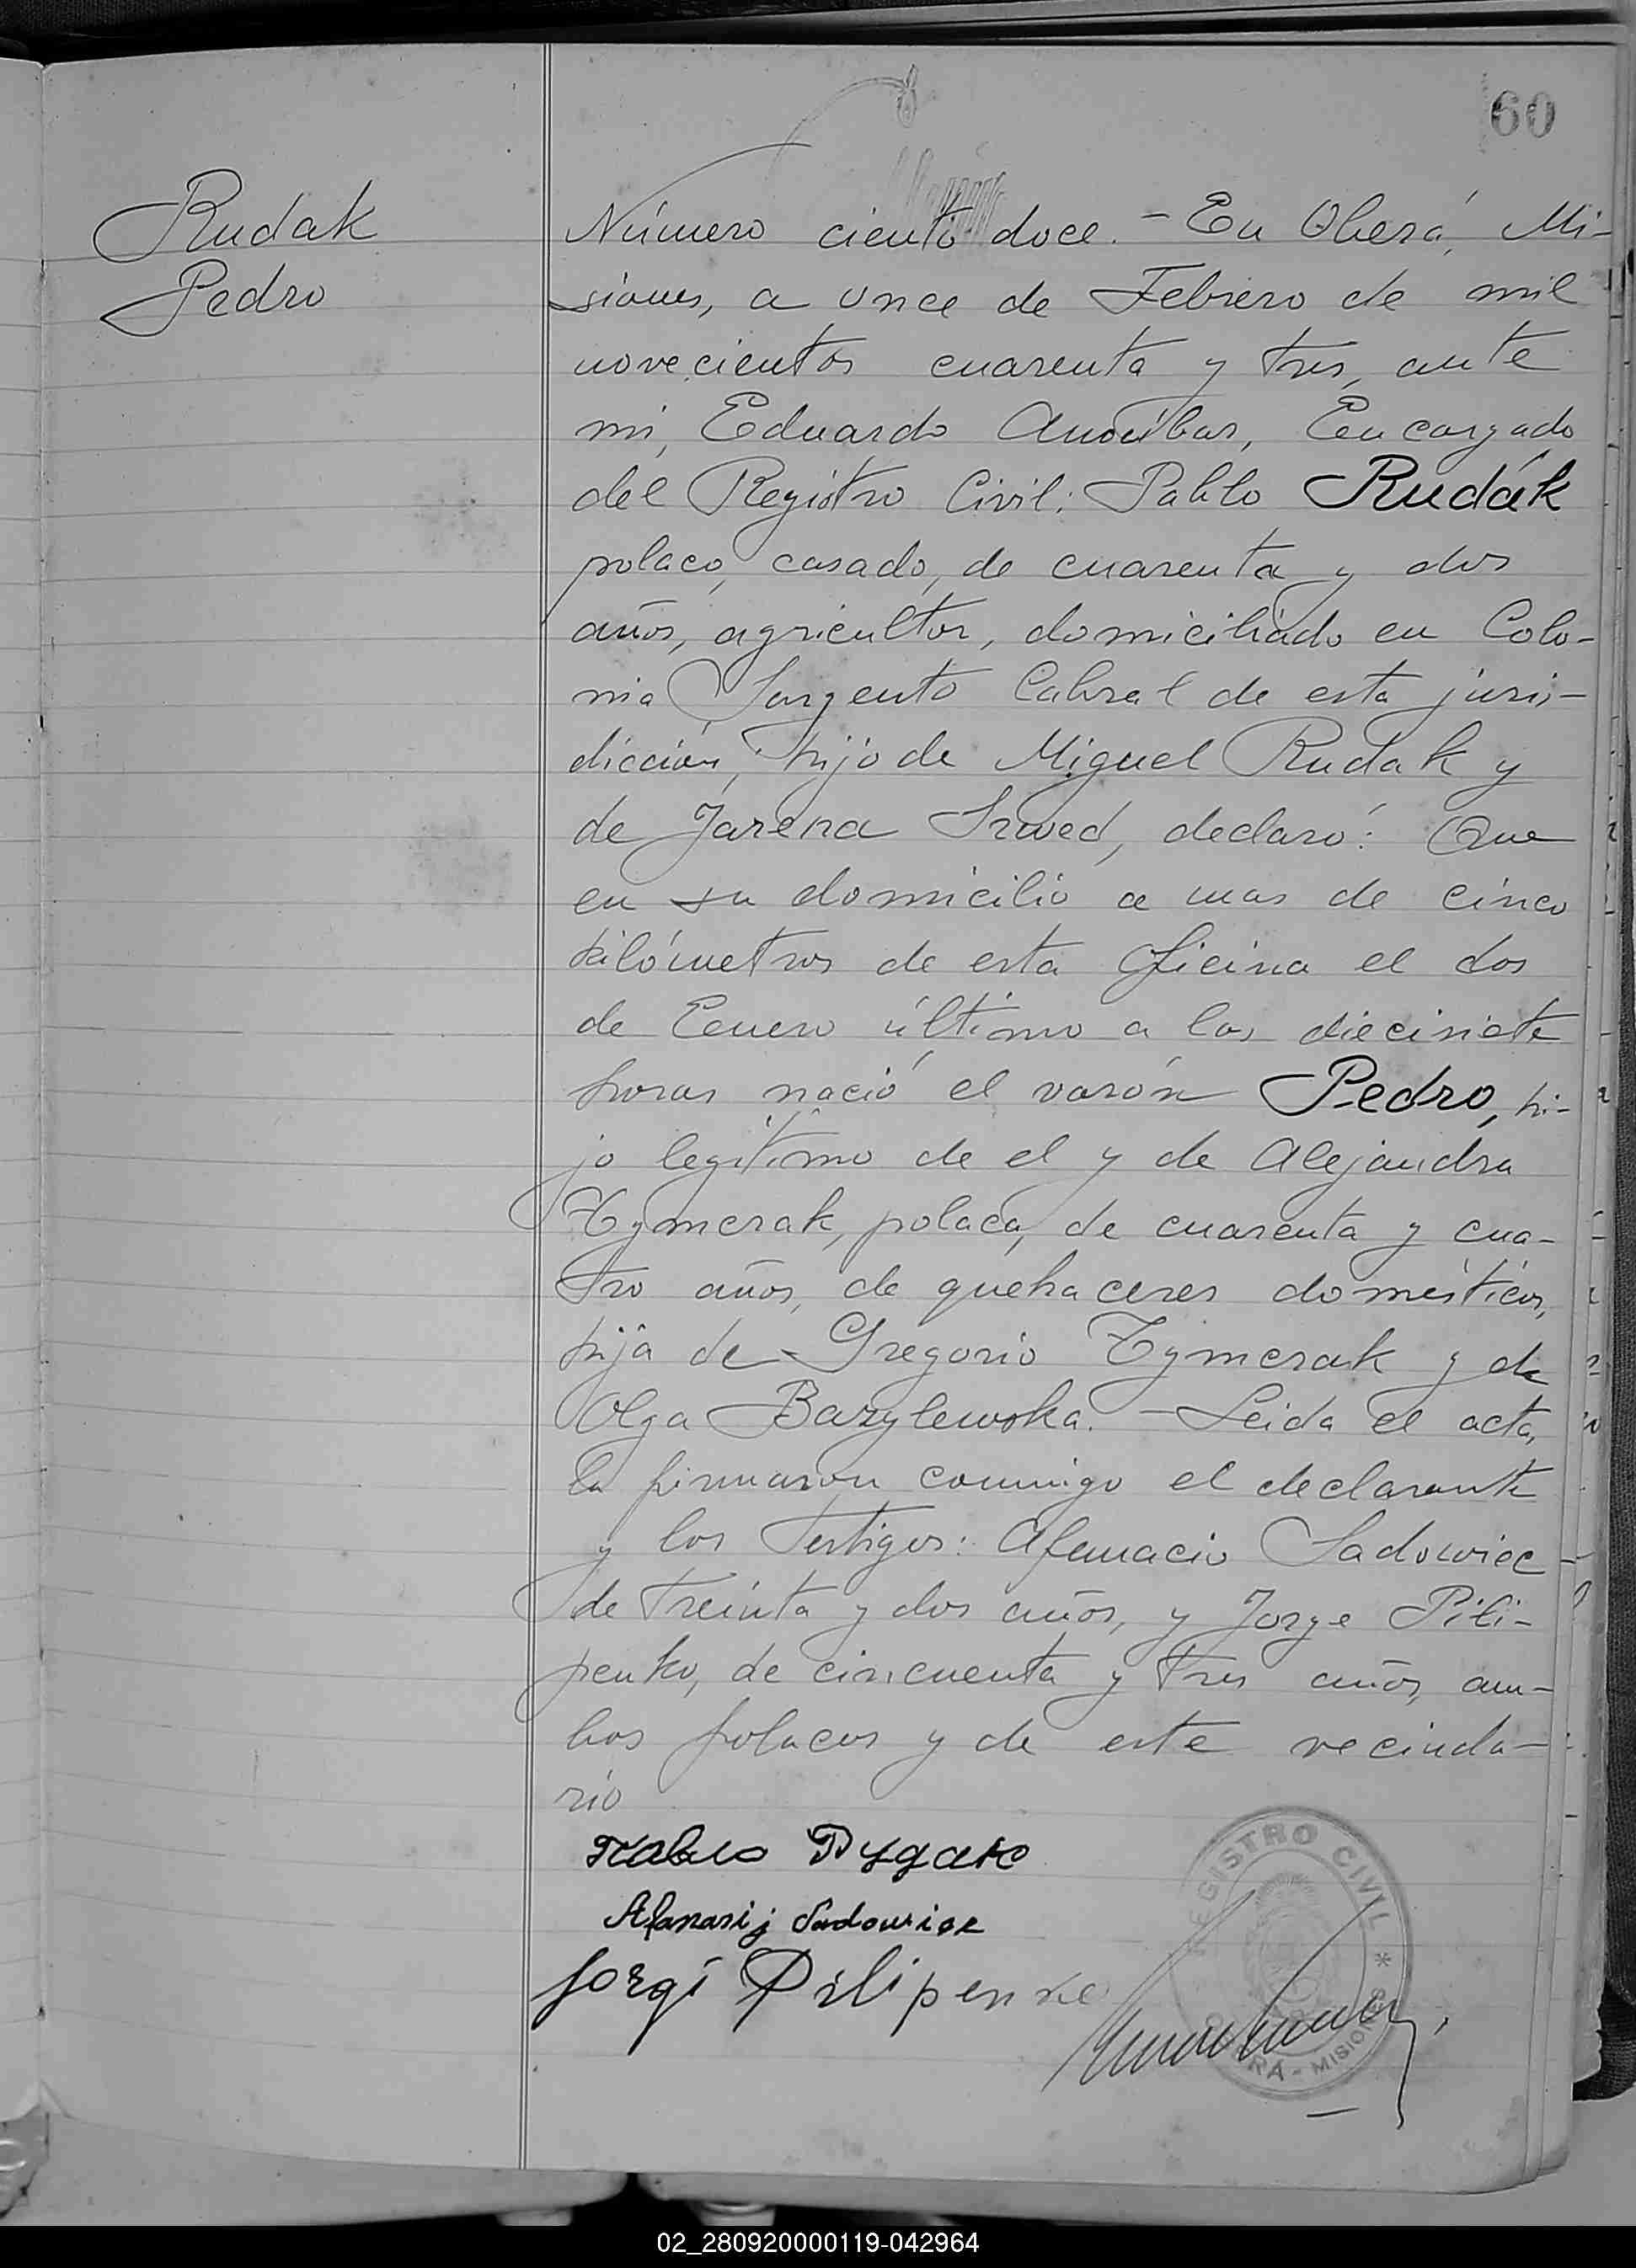 60
Rudak
Pedro
Número ciento doce. - En Oberá, Mi-
siones, a once de Febrero de mil
novecientos cuarenta y tres, ante
mi, Eduardo Encargado
del Registro Civil: Pablo Rudák
polaco, casado, de cuarenta y dos
años, agricultor, domiciliado en Colo-
nia Sargento Cabral de esta juris-
dicción, hijo de Miguel Rudak y
de Jarena Szwed, declaró: Que
en su domicilio a mas de cinco
kilómetros de esta Oficina el dos
de Enero último a las diecisiete
horas nació el varón Pedro, hi-
jo legítimo de el y de Alejandra
Tymczak, polaca, de cuarenta y cua-
tro años, de quehaceres domésticos,
hija de Gregorio Tymczak y de
Olga Bazylewska. - Leida el acta,
la firmaron conmigo el declarante
y los testigos: Afanacio Sadowiec
de treinta y dos años, y Jorge Pili-
penko, de cincuenta y tres años, am-
bos polacos y de este vecinda-
rio
Павло Рудак
Afanasij Sadowiec
Jorgi Pilipenko
REGISTRO CIVIL * OBERÁ - MISIONES
02_280920000119-042964